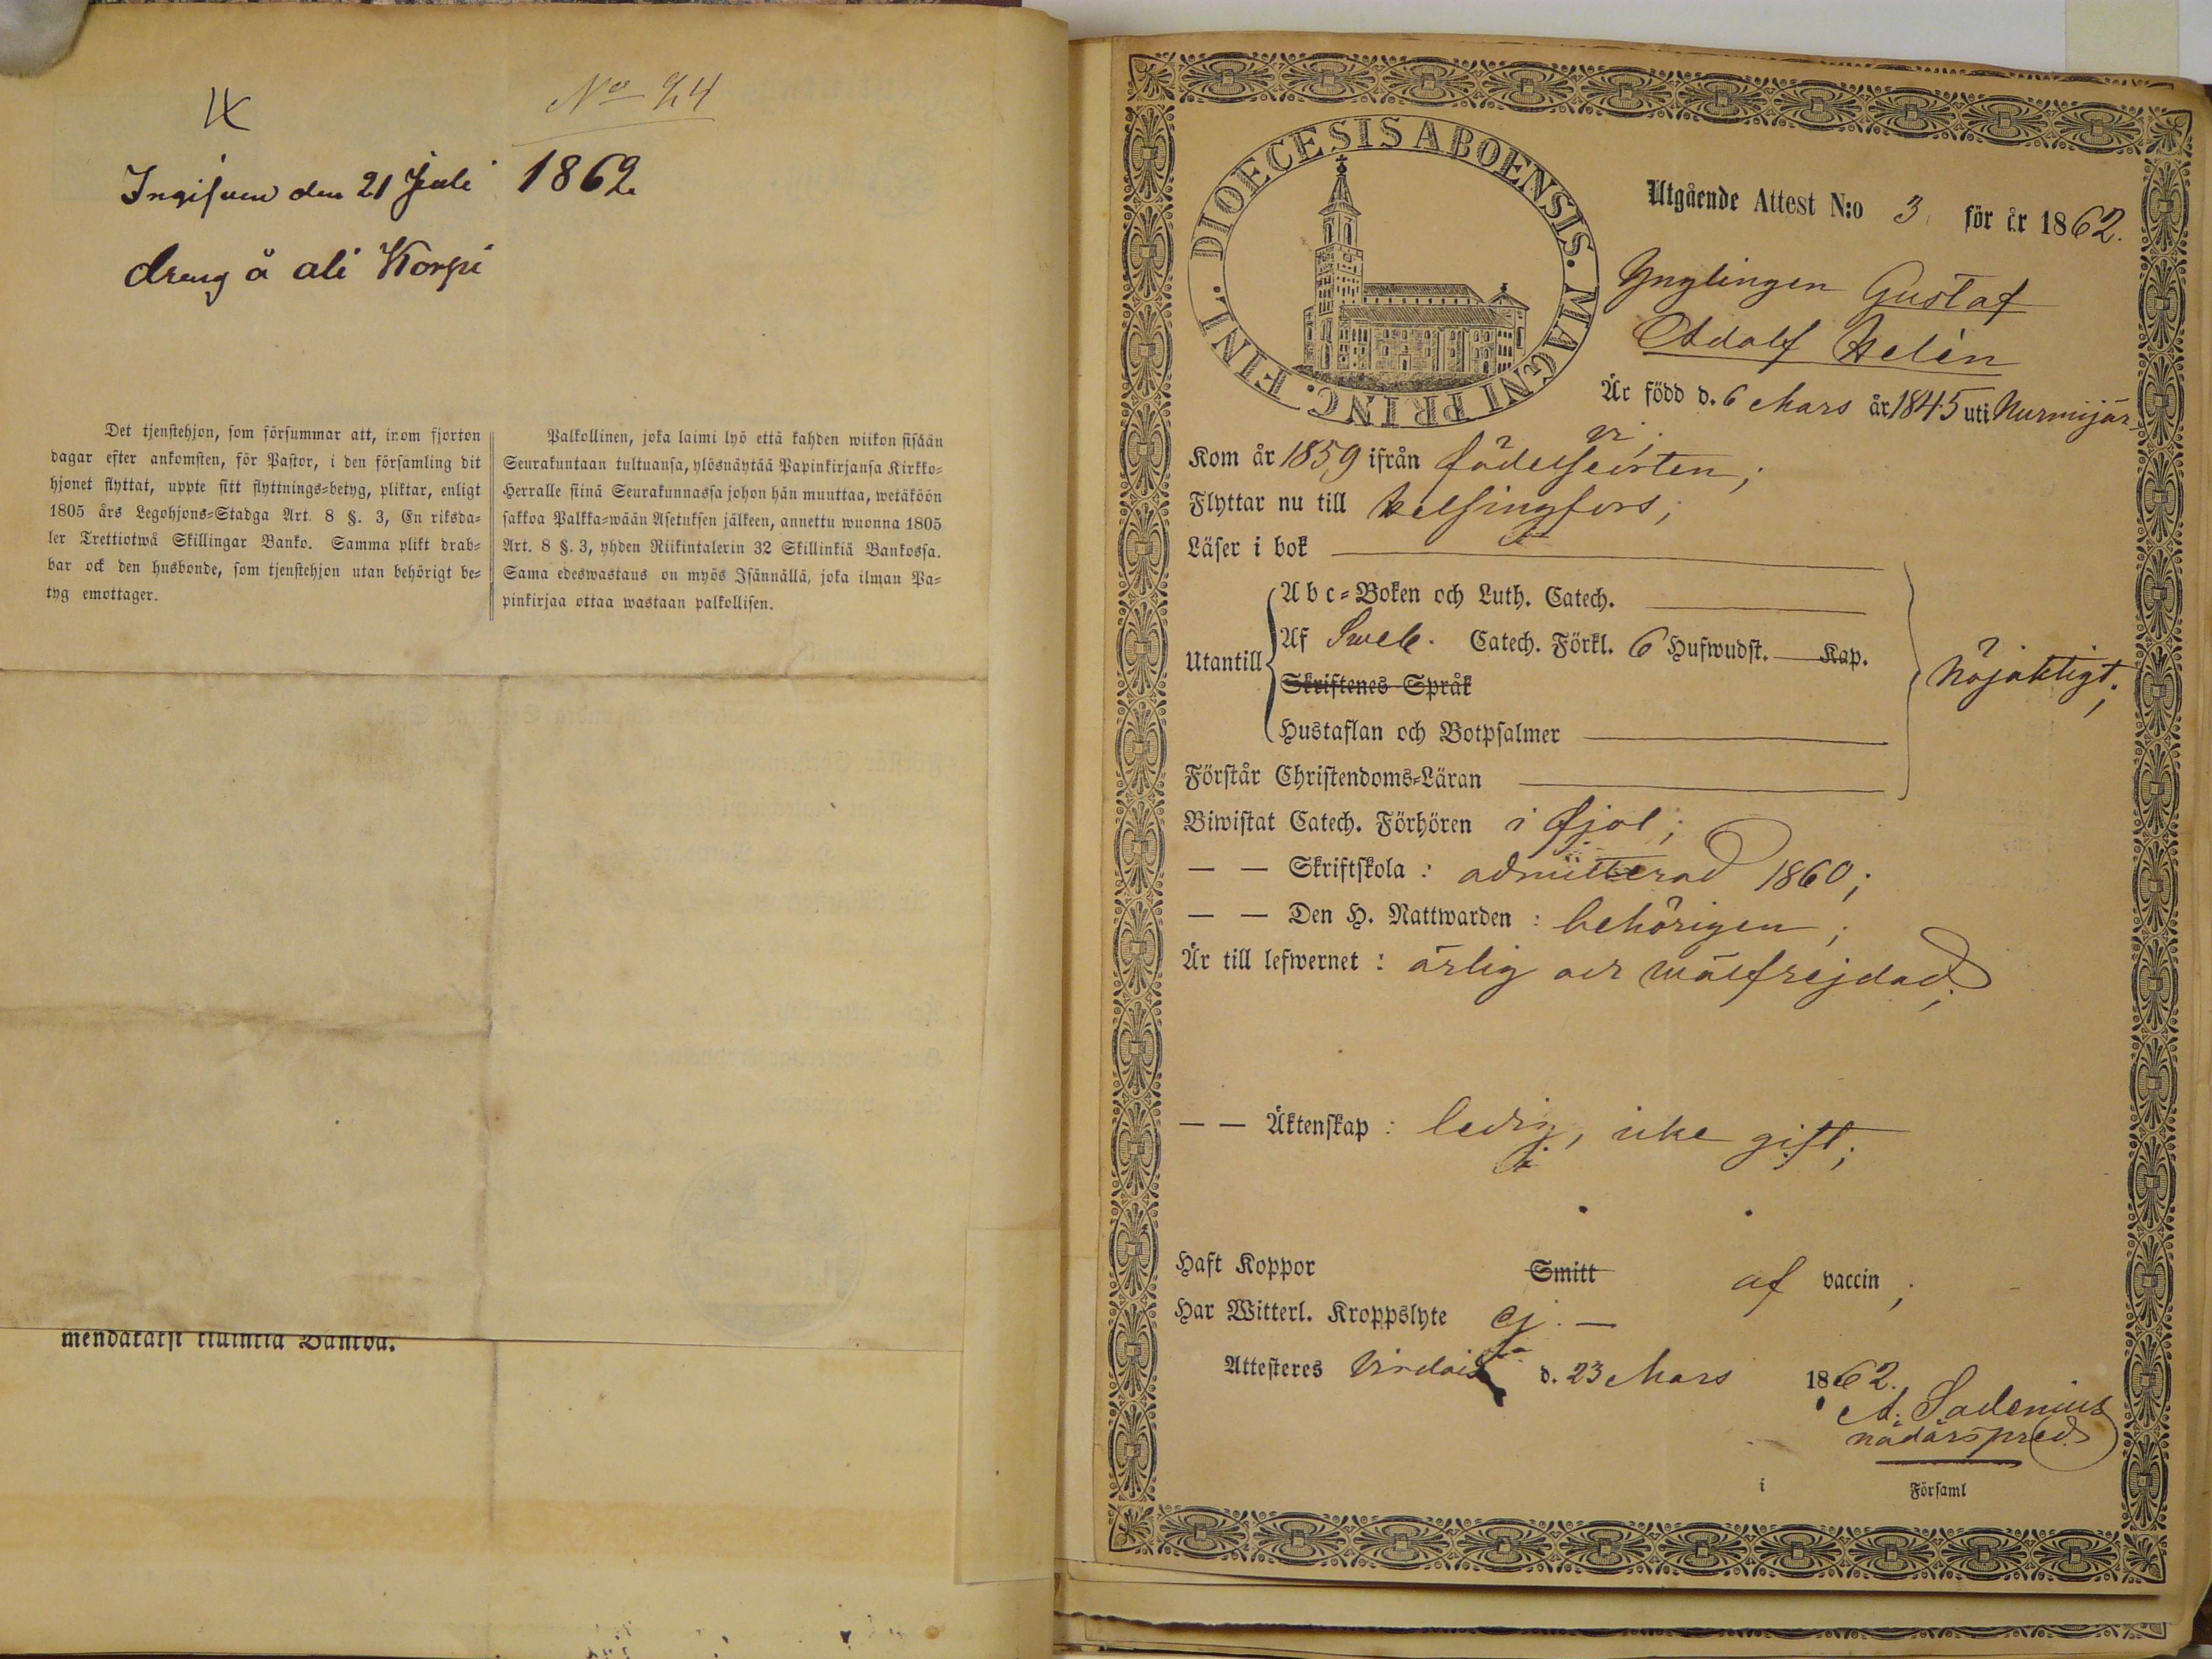 No 94
Ingifven den 21 Juli 1862
dreng å ali Korpi
Det tjenstehjon, som försummar att, inom fjorton
dagar efter ankomsten, för Pastor, i den församling dit
hjonet flyttat, uppte sitt flyttnings=betyg, pliktar, enligt
1805 års Legohjons=Stadga Art. 8 §. 3, En riksda=
ler Trettiotwå Skillingar Banko. Samma plikt drab=
bar ock den husbonde, som tjenstehjon utan behörigt be=
tyg emottager.
Palkollinen, joka laimi lyö että kahden wiikon sisään
Seurakuntaan tultuansa, ylösnäytää Papinkirjansa Kirkko=
Herralle siinä Seurakunnassa johon hän muuttaa, wetäköön
sakkoa Palkka=wään Asetuksen jälkeen, annettu wuonna 1805
Art. 8 §. 3, yhden Riikintalerin 32 Skillinkiä Bankossa.
Sama edeswastaus on myös Isännällä, joka ilman Pa=
pinkirjaa ottaa wastaan palkollisen.
DIOECESIS ABOENSIS. MAGNI PRINC. FINL.
Utgående Attest N:o 3 för år 1862.
Ynglingen Gustaf
Adolf Helén
Är född d. 6 Mars år 1845 uti Nurmijär-
vi;
Kom år 1859 ifrån födelseorten;
Flyttar nu till Helsingfors;
Läser i bok
Abc=Boken och Luth. Catech.
Utantill Af Sweb. Catech. Förkl. 6 Hufwudst. Kap.
Nöjaktigt;
Skriftenes Språk
Hustaflan och Botpsalmer
Förstår Christendoms=Läran
Biwistat Catech. Förhören i fjol;
— — Skriftskola: admitterad 1860;
— — Den H. Nattwarden: behörigen;
Är till lefwernet: ärlig och wälfrejdad;
— — Äktenskap: ledig, icke gift;
Haft Koppor Smitt af vaccin;
Har Witterl. Kroppslyte ej. —
Attesteres Virdois d. 23 Mars 1862.
A. Sadenius
nådårspred.
i Församl